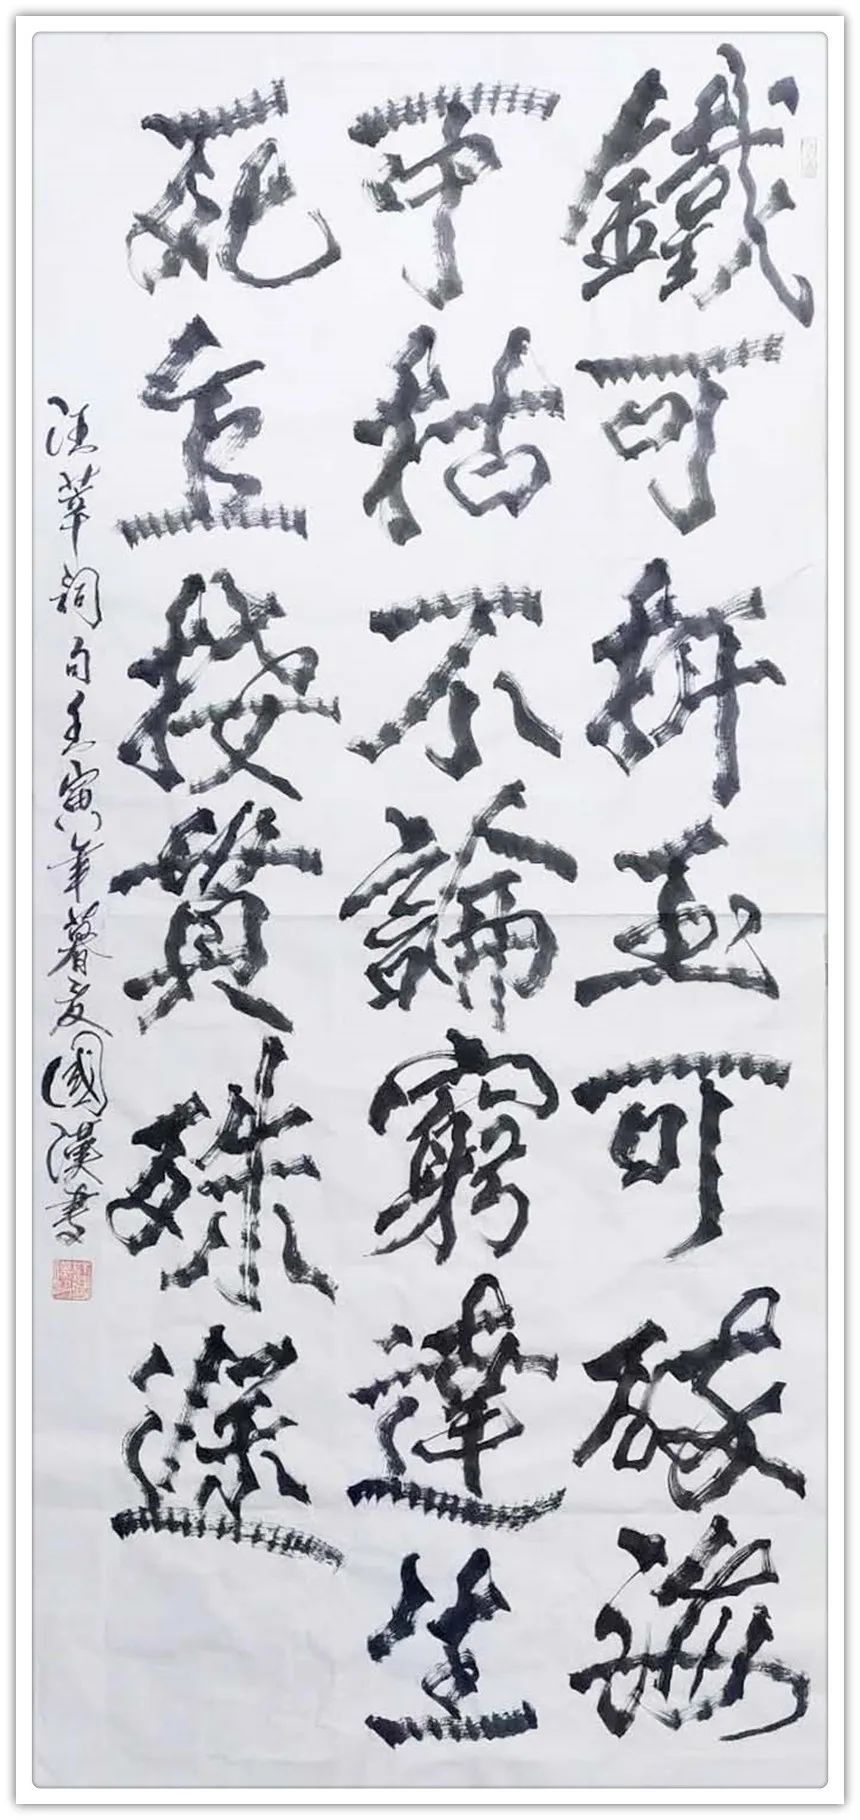 鐵可折玉可碎海
可枯不論窮達生
死直接貫殊途
汪莘詞句壬寅年暮夏國漢書